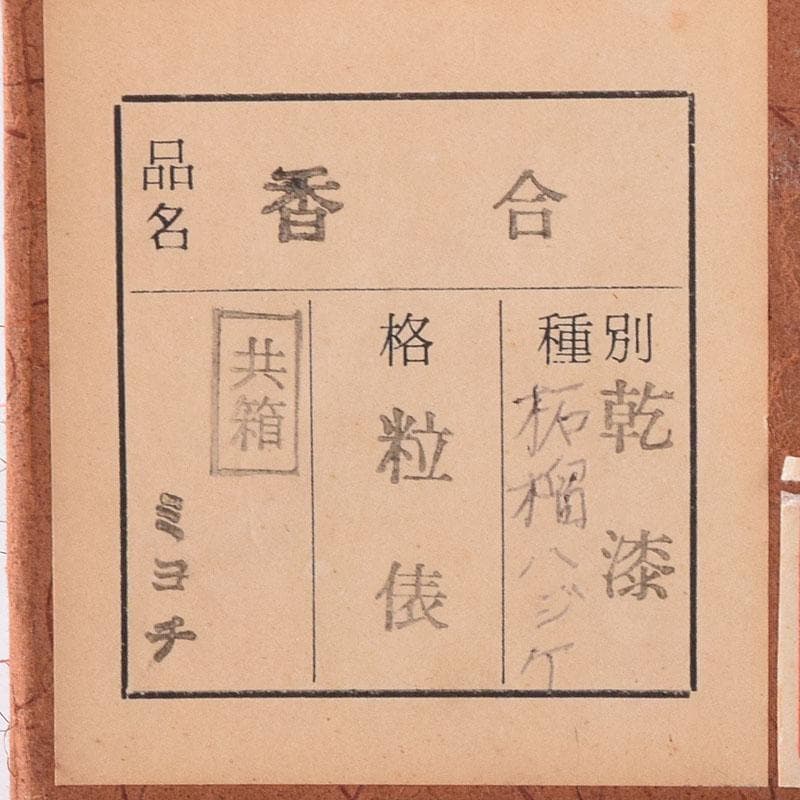 品名
香合
種別
乾漆
柘榴ハジケ
格
粒俵
共箱
ミヨチ